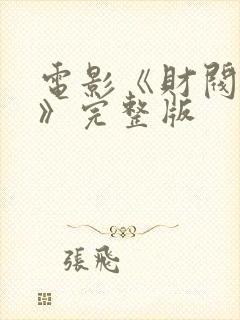 電影《財閥
》完整版
張飛